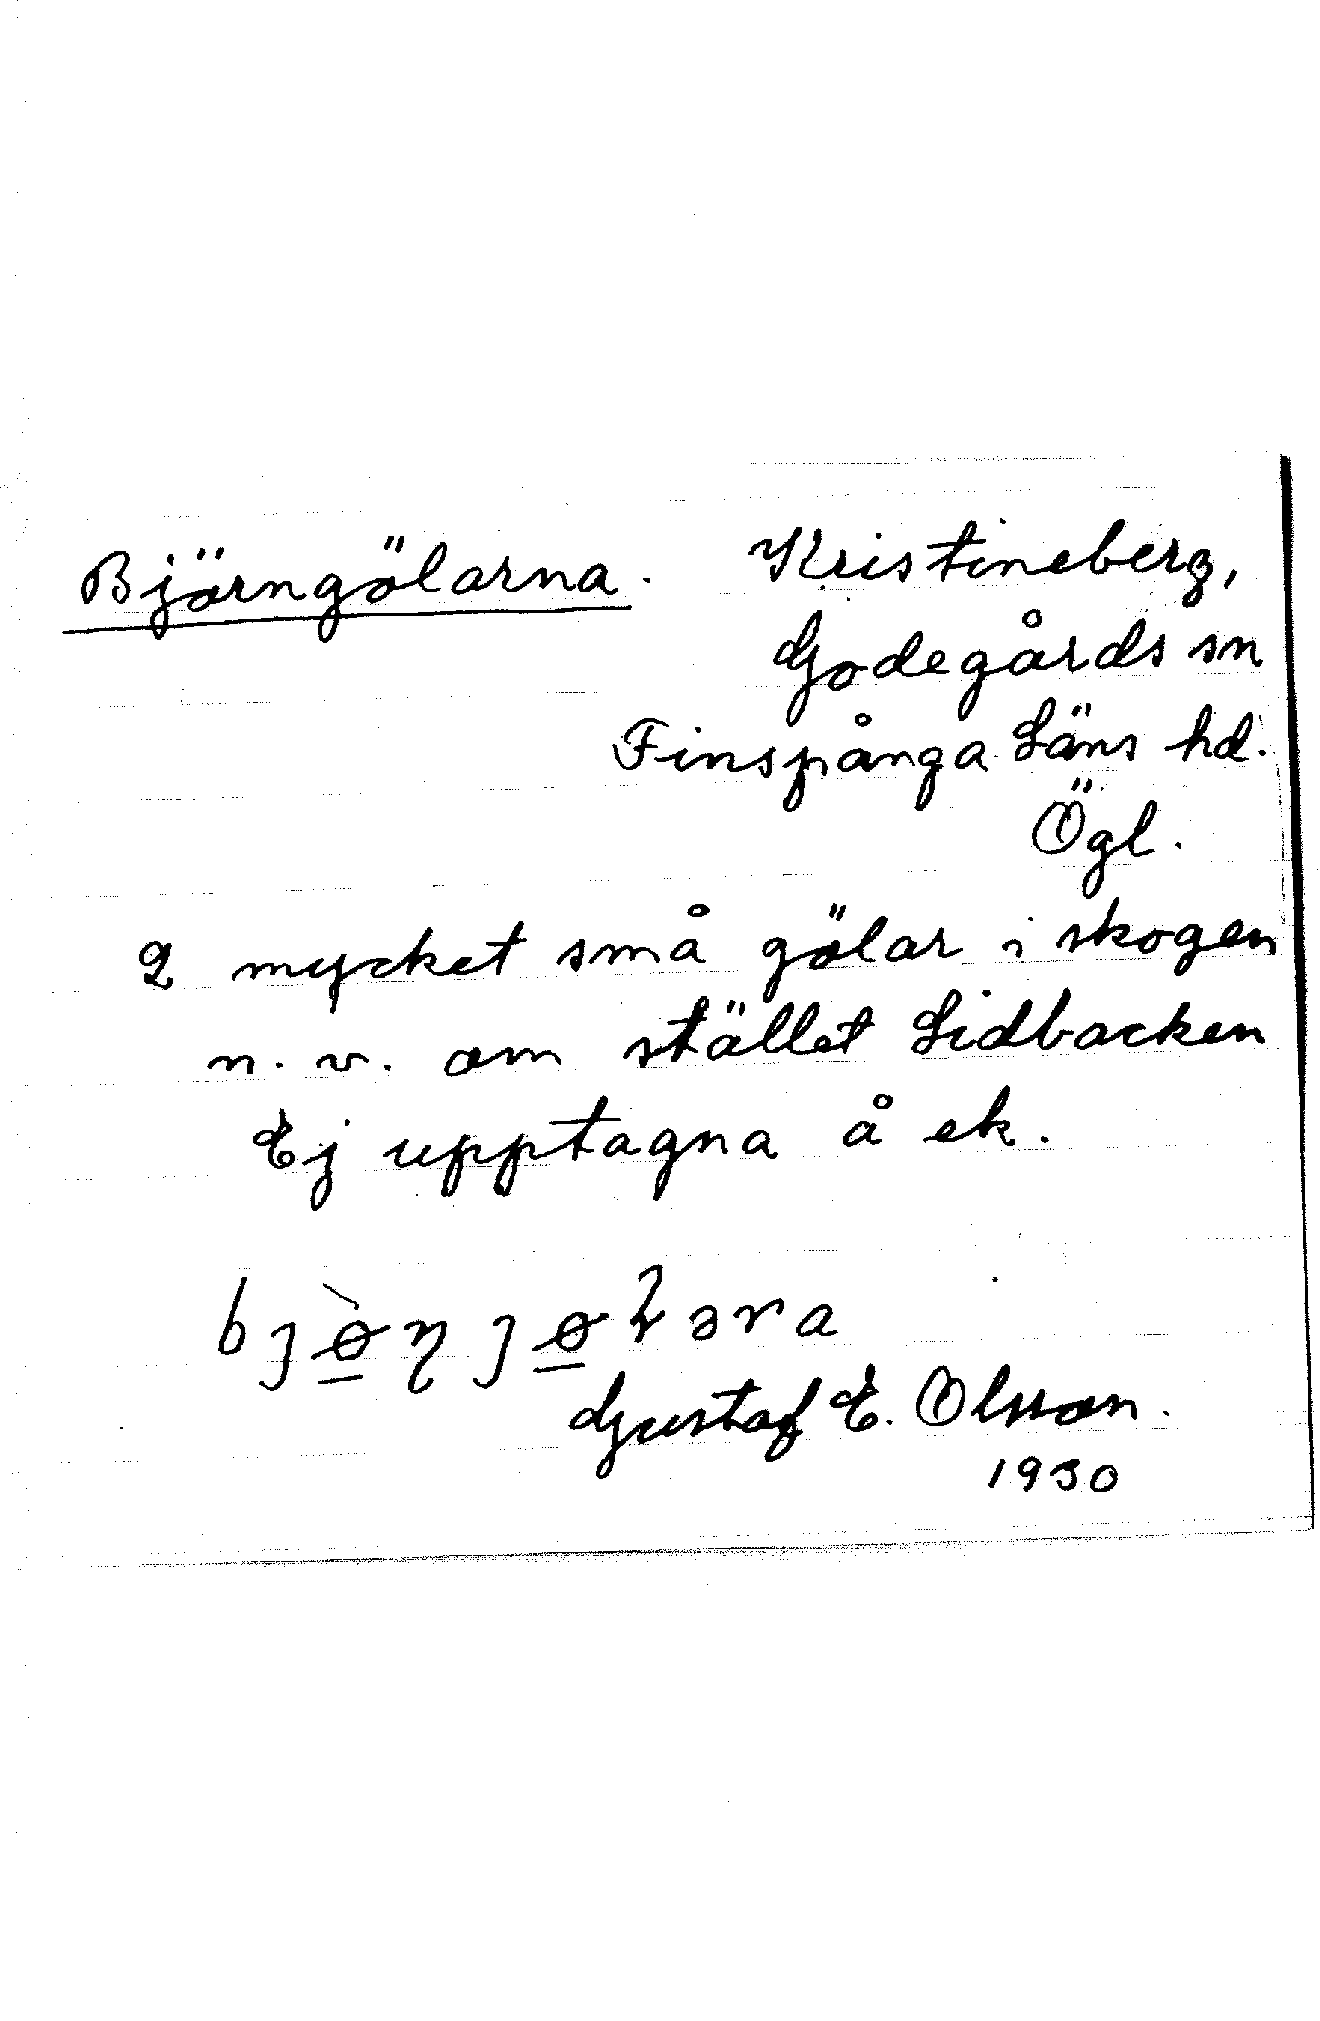 Björngölarna. Kristineberg,
Godegårds sn
Finspånga Läns hd.
Ögl.
2 mycket små gölar i skogen
n. v. om stället Lidbacken
Ej upptagna å ek.
Gustaf E. Olsson.
1930